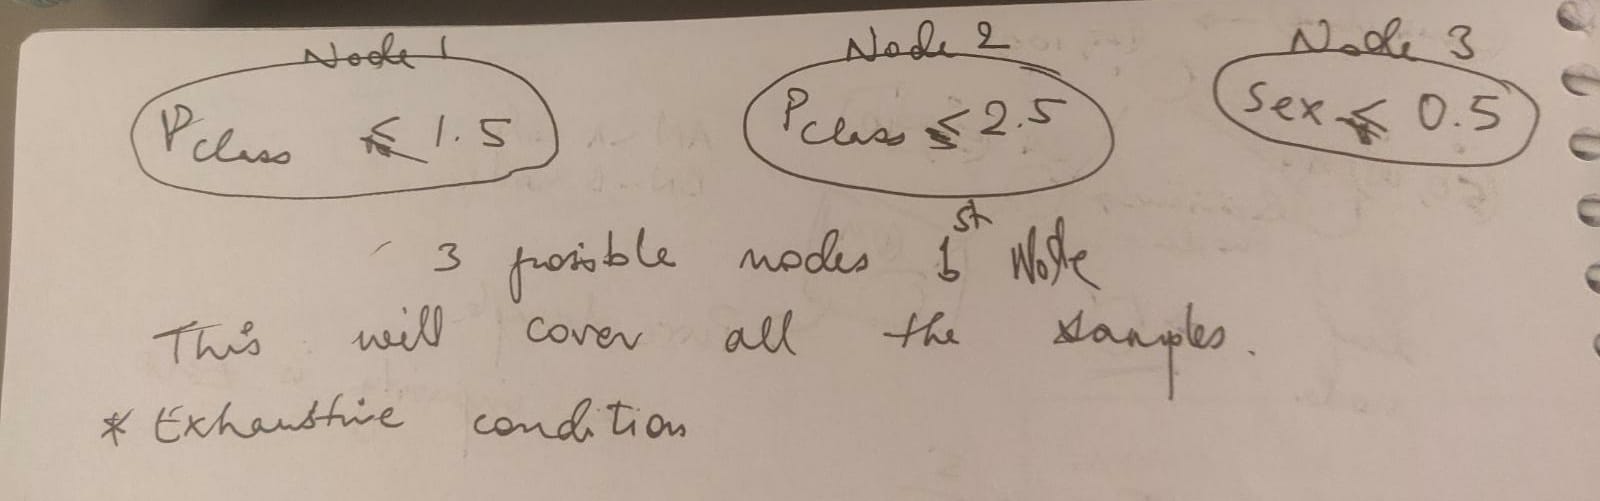 Node 1 Node 2 Node 3
Pclass ≤ 1.5 Pclass ≤ 2.5 Sex ≤ 0.5
3 possible nodes 1st Node
This will cover all the samples.
* Exhaustive condition